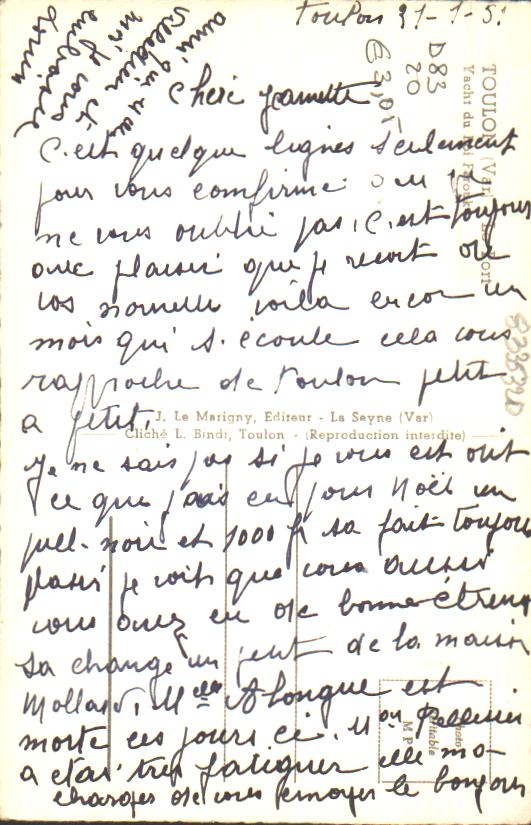 Toulon 31-1-51
Chère Jeannette
C'est quelque lignes seulement
pour vous confirme
ne vous oublié pas, C'est toujours
avec plaisir que je recoit de
vos nouvelle voila encor un
mois qui s'écoule cela vous
rapproche de toulon petit
a petit.
Je ne sais pas si je vous est dit
ce que j'ais eu pour Noël un
pull-noir et 1000 f sa fait toujours
plaisir je voit que vous aussi
vous avez eu de bonne étrenne
sa change un peut de la maison
Mollard, Melle Alongue est
morte ces jours ci. Mon
a etait tres fatiguer elle m'o
charges de vous envoyer le bonjour
ainsi qui
et
moi je vous
embrasse
TOULON (Var)
Yacht du Roi
J. Le Marigny, Editeur - La Seyne (Var)
Cliché L. Bindi, Toulon - (Reproduction interdite)
Photo
véritable
M P
D83
20
€ 3,01